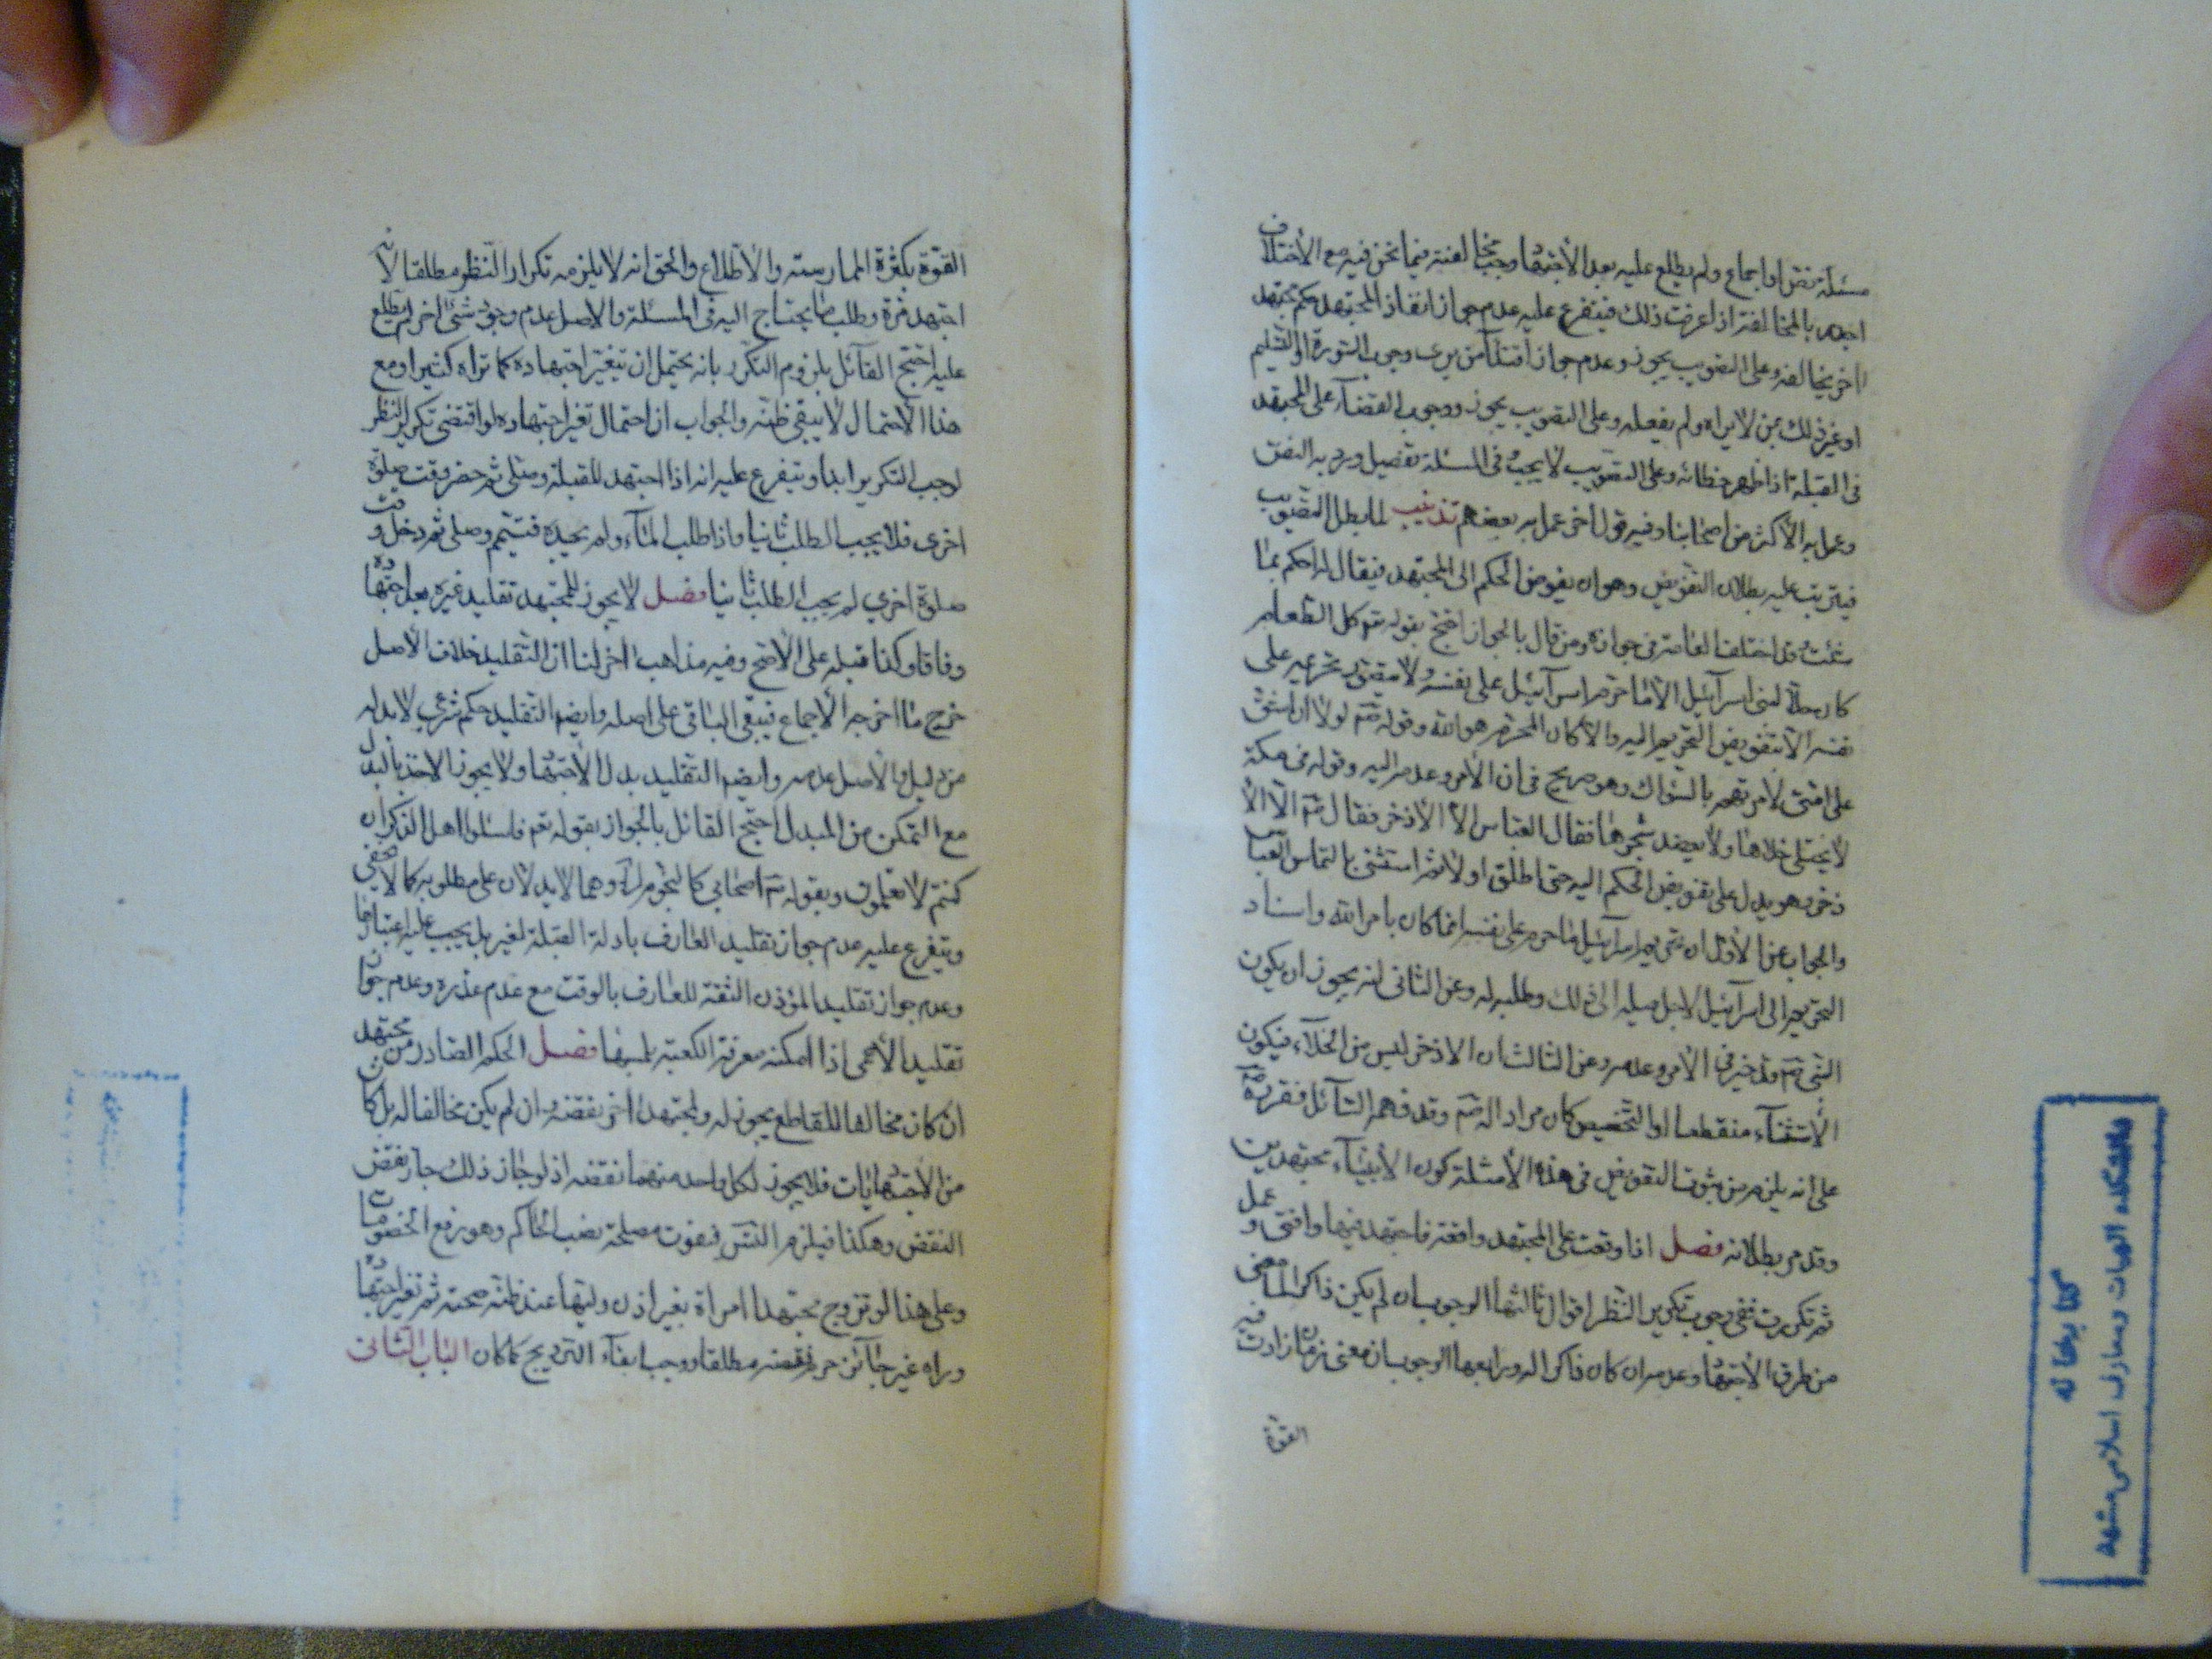 مسئلة نص او اجماع ولم يطلع عليه بعد الاجتهاد وجب مخالفته فيما نحن فيه مع الاختلاف
اجدر بالمخالفة اذا عرفت ذلك فيتفرع عليه عدم جواز انفاذ المجتهد حكم مجتهد
اخر يخالفه وعلى التصويب يجوز وعدم جواز اقتداء من يرى وجوب السورة او التسليم
او غير ذلك بمن لا يراه ولم يفعله وعلى التصويب يجوز ووجوب القضاء على المجتهد
فى القبلة اذا ظهر خطائه وعلى التصويب لا يجب وفى المسئلة تفصيل ورد به النص
وعمل به الاكثر من اصحابنا وفيه قول اخر عمل به بعضهم تذنيب لما بطل التصويب
فيترتب عليه بطلان التفويض وهو ان يفوض الحكم الى المجتهد فيقال له احكم بما
شئت وقد اختلف العامة فى جوازه ومن قال بالجواز احتج بقوله تع كل الطعام
كان حلا لبنى اسرائيل الا ما حرم اسرائيل على نفسه ولا يتصور تحريمه على
نفسه الا بتفويض التحريم اليه والا كان المحرم هو الله وقوله ص لولا ان اشق
على امتى لامرتهم بالسواك وهو صريح فى ان الامر وعدمه اليه وقوله فى مكة
لا يختلى خلاها ولا يعضد شجرها فقال العباس الا الاذخر فقال ص الا الا
ذخر وهو يدل على تفويض الحكم اليه حتى اطلق اولا ثم استثنى بالتماس العباس
والجواب عن الاول ان تحريم اسرائيل ما حرم على نفسه انما كان بامر الله واسناد
التحريم الى اسرائيل لاجل ميله الى ذلك وطلبه له وعن الثانى انه يجوز ان يكون
النبى ص قد خير فى الامر وعدمه وعن الثالث ان الاذخر ليس من الخلاء فيكون
الاستثناء منقطعا او التخصيص كان مراد اله ص وقد فهم السائل فقرره ص
على انه يلزم من ثبوت التفويض فى هذه الامثلة كون الانبياء مجتهدين
وقد مر بطلانه فصل اذا وقعت على المجتهد واقعة فاجتهد فيها وافتى و عمل
ثم تكررت ففى وجوب تكرير النظر اقوال ثالثها الوجوب ان لم يكن ذاكرا لما مضى
من طرق الاجتهاد وعدمه ان كان ذاكرا له ورابعها الوجوب ان مضى زمان زادت فيه
القوة
القوة بكثرة الممارسته والاطلاع والحق انه لا يلزمه تكرار النظر مطلقا لانه
اجتهد مرة وطلب ما يحتاج اليه فى المسئلة والاصل عدم وجود شئ اخر لم يطلع
عليه احتج القائل بلزوم التكرر بانه يحتمل ان يتغير اجتهاده كما تراه كثيرا ومع
هذا الاحتمال لا يبقى ظنه والجواب ان احتمال تغير اجتهاده لو اقتضى تكرير النظر
لوجب التكرير ابدا ويتفرع عليه انه اذا اجتهد للقبلة وصلى ثم حضر وقت صلوة
اخرى فلا يجب الطلب ثانيا واذا طلب الماء ولم يجده فتيمم وصلى ثم دخل وقت
صلوة اخرى لم يجب الطلب ثانيا فصل لا يجوز للمجتهد تقليد غيره بعد اجتهاده
وفاقا وكذا قبله على الاصح وفيه مذاهب اخر لنا ان التقليد خلاف الاصل
خرج ما اخرجه الاجماع فيبقى الباقى على اصله وايضا التقليد حكم شرعى لا بد له
من دليل والاصل عدمه وايضا التقليد بدل الاجتهاد ولا يجوز الاخذ بالبدل
مع التمكن من المبدل احتج القائل بالجواز بقوله تع فاسئلوا اهل الذكر ان
كنتم لا تعلمون وبقوله ص اصحابى كالنجوم اه وهما لا يدلان على مطلوبه كما لا يخفى
ويتفرع عليه عدم جواز تقليد العارف بادلة القبلة لغيره بل يجب عليه اعتبارها
وعدم جواز تقليد المؤذن الثقة للعارف بالوقت مع عدم عذره وعدم جواز
تقليد الاعمى اذا امكنه معرفة الكعبة بلمسها فصل الحكم الصادر من مجتهد
ان كان مخالفا للقاطع يجوز له ولمجتهد اخر نقضه وان لم يكن مخالفا له بل كان
من الاجتهاديات فلا يجوز لكل واحد منهما نقضه اذ لو جاز ذلك جاز نقض
النقض وهكذا فيلزم التس فيفوت مصلحة نصب الحاكم وهو رفع الخصومات
وعلى هذا لو تزوج مجتهد امراة بغير اذن وليها عند ظنه صحته ثم تغير اجتهاده
وراه غير جائز حرم نقضه مطلقا ووجب ابقاء التزويج كما كان الباب الثانى
دانشكده الهيات ومعارف اسلامى مشهد
كتابخانه